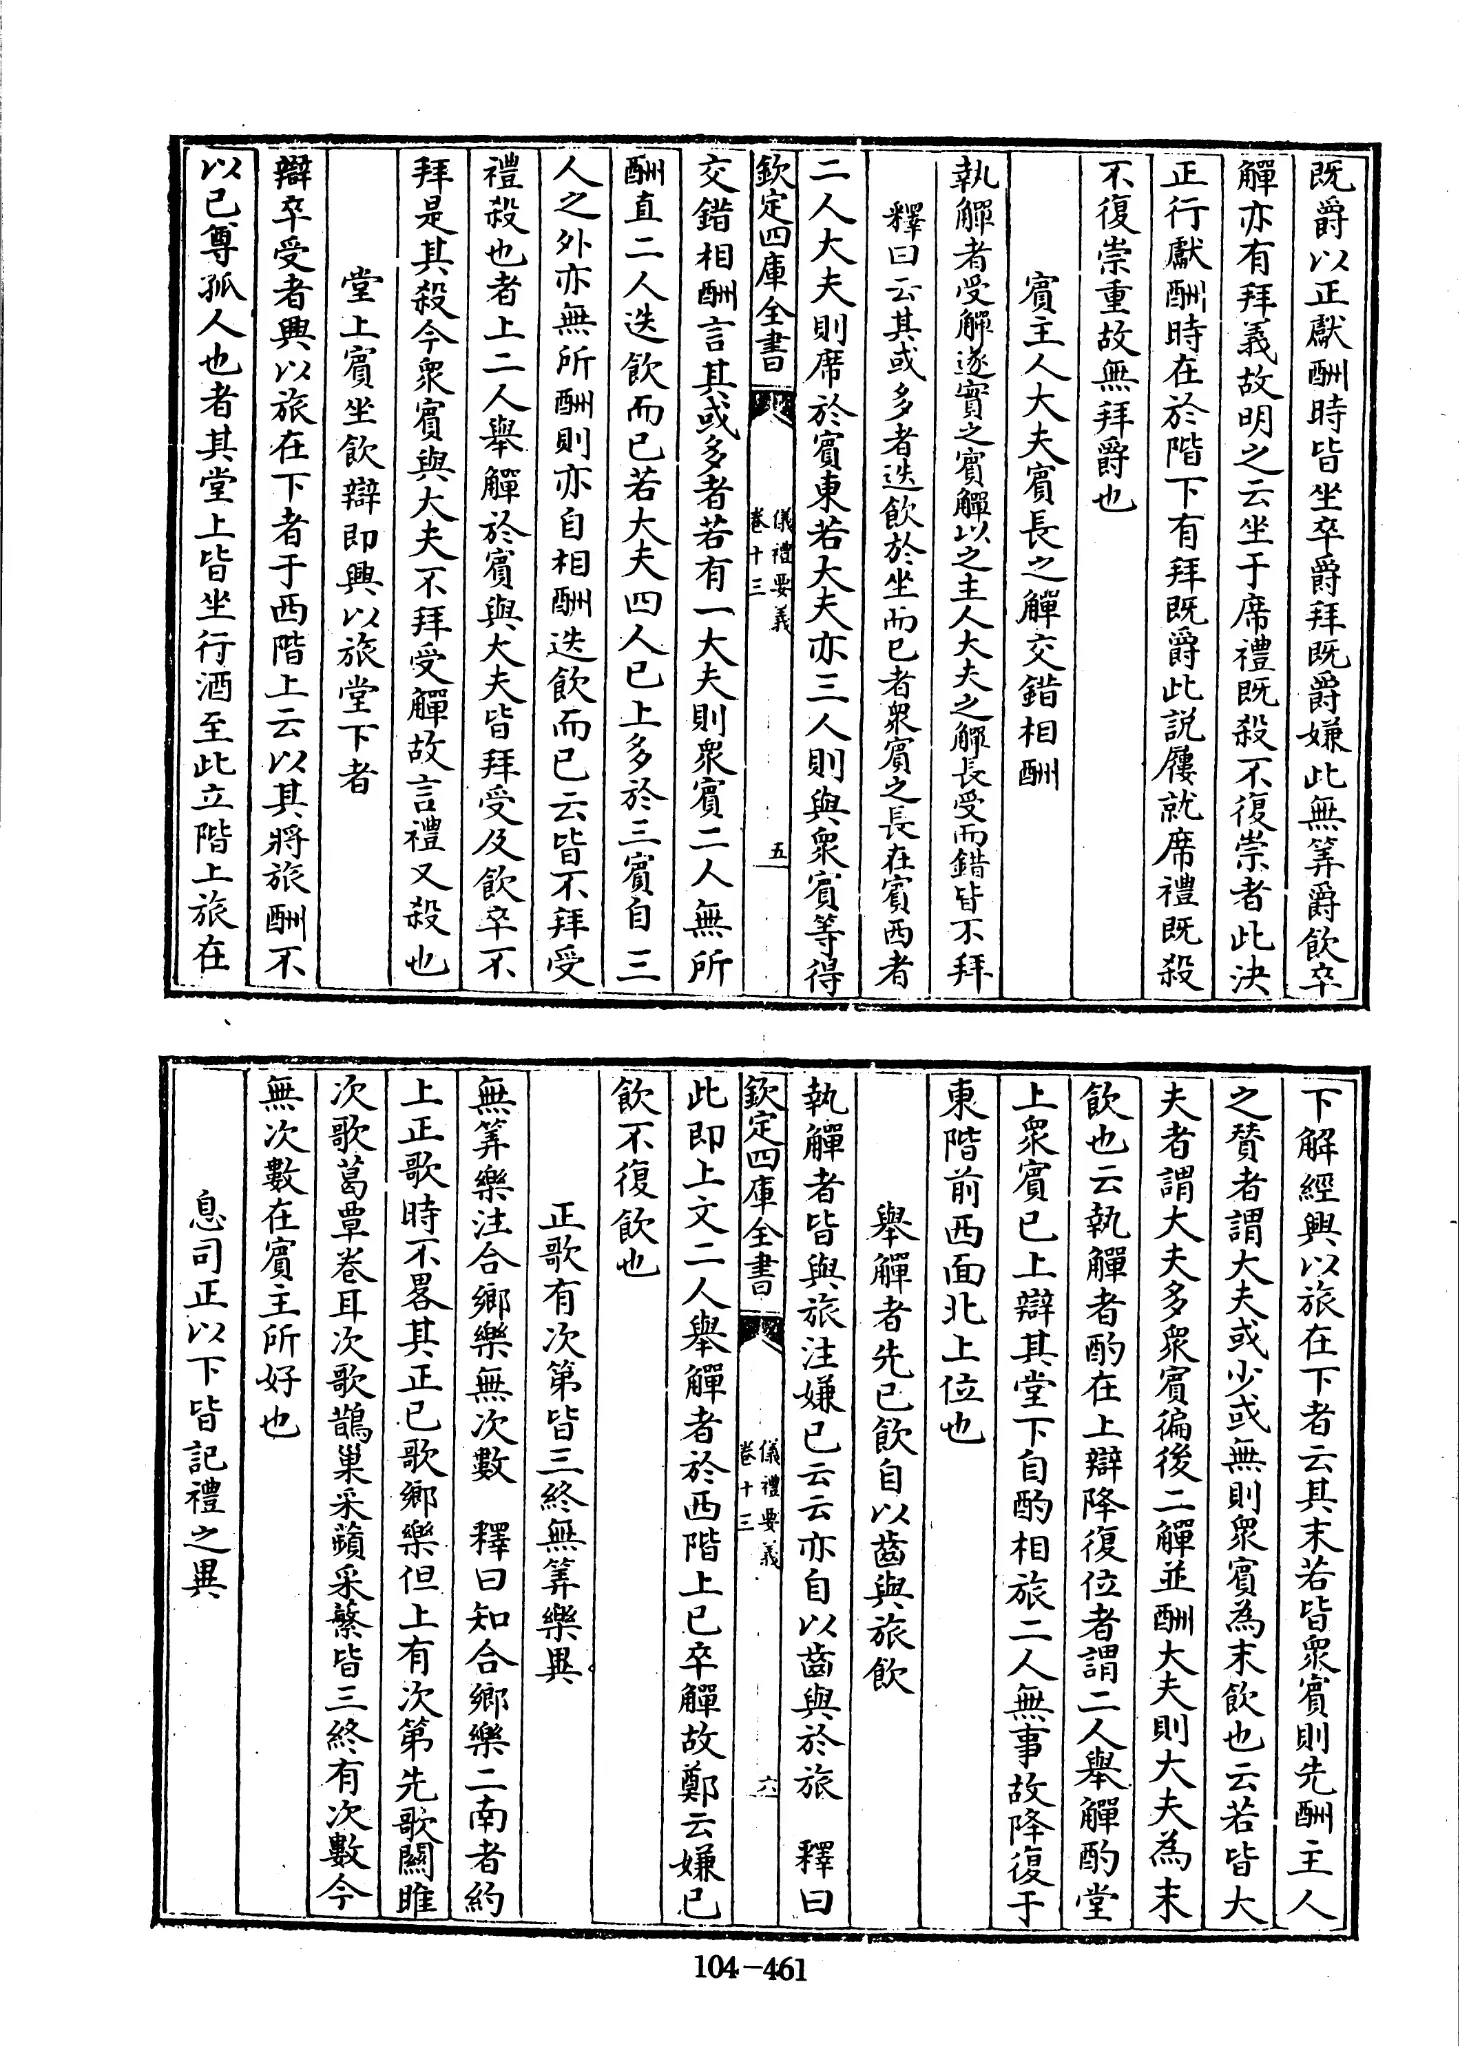 既爵以正獻酬時皆坐卒爵拜既爵嫌此無筭爵飲卒
觶亦有拜義故明之云坐于席禮既殺不復崇者此決
正行獻酬時在於階下有拜既爵此説屨就席禮既殺
不復崇重故無拜爵也
賓主人大夫賓長之觶交錯相酬
執觶者受觶遂實之賓觶以之主人大夫之觶長受而錯皆不拜
釋曰云其或多者迭飲於坐而已者衆賓之長在賓西者
二人大夫則席於賓東若大夫亦三人則與衆賓等得
欽定四庫全書
儀禮要義
卷十三
五
交錯相酬言其或多者若有一大夫則衆賓二人無所
酬直二人迭飲而已若大夫四人已上多於三賓自三
人之外亦無所酬則亦自相酬迭飲而已云皆不拜受
禮殺也者上二人舉觶於賓與大夫皆拜受及飲卒不
拜是其殺今衆賓與大夫不拜受觶故言禮又殺也
堂上賓坐飲辯即興以旅堂下者
辯卒受者興以旅在下者于西階上云以其將旅酬不
以已尊孤人也者其堂上皆坐行酒至此立階上旅在
下解經興以旅在下者云其末若皆衆賓則先酬主人
之贊者謂大夫或少或無則衆賓為末飲也云若皆大
夫者謂大夫多衆賓徧後二觶並酬大夫則大夫為末
飲也云執觶者酌在上辯降復位者謂二人舉觶酌堂
上衆賓已上辯其堂下自酌相旅二人無事故降復于
東階前西面北上位也
舉觶者先已飲自以齒與旅飲
執觶者皆與旅注嫌已云云亦自以齒與於旅 釋曰
欽定四庫全書
儀禮要義
卷十三
六
此即上文二人舉觶者於西階上已卒觶故鄭云嫌已
飲不復飲也
正歌有次第皆三終無筭樂異
無筭樂注合鄉樂無次數 釋曰知合鄉樂二南者約
上正歌時不畧其正已歌鄉樂但上有次第先歌關雎
次歌葛覃卷耳次歌鵲巢采蘋采蘩皆三終有次數今
無次數在賓主所好也
息司正以下皆記禮之異
104-461